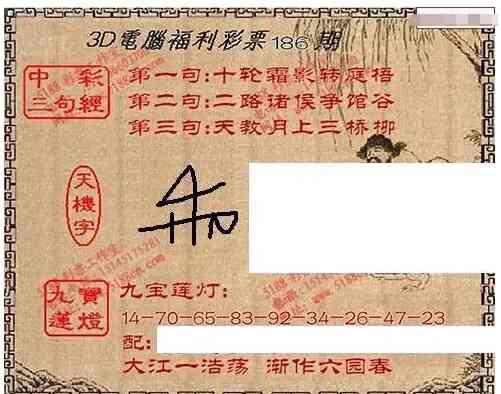 3D電腦福利彩票186期
中彩三句經
第一句:十轮霜影转庭梧
第二句:二路诸侯争馆谷
第三句:天教月上三桥柳
天機字
九寶蓮燈
九宝莲灯:
14-70-65-83-92-34-26-47-23
配:
大江一浩荡 渐作六园春